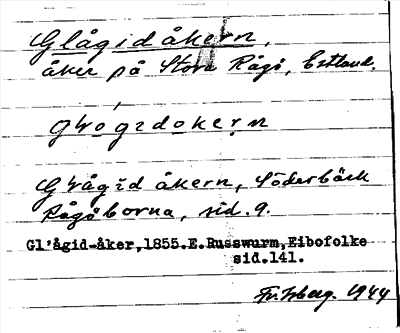 Glågidåkern,
åker på Stora Rågö, Estland.
gƚogɪdokeṛn
Gƚågĭd åkern, Söderbäck
Rågöborna, sid. 9.
Gl'ågid-åker,1855.E.Russwurm,Eibofolke
sid.141.
1944